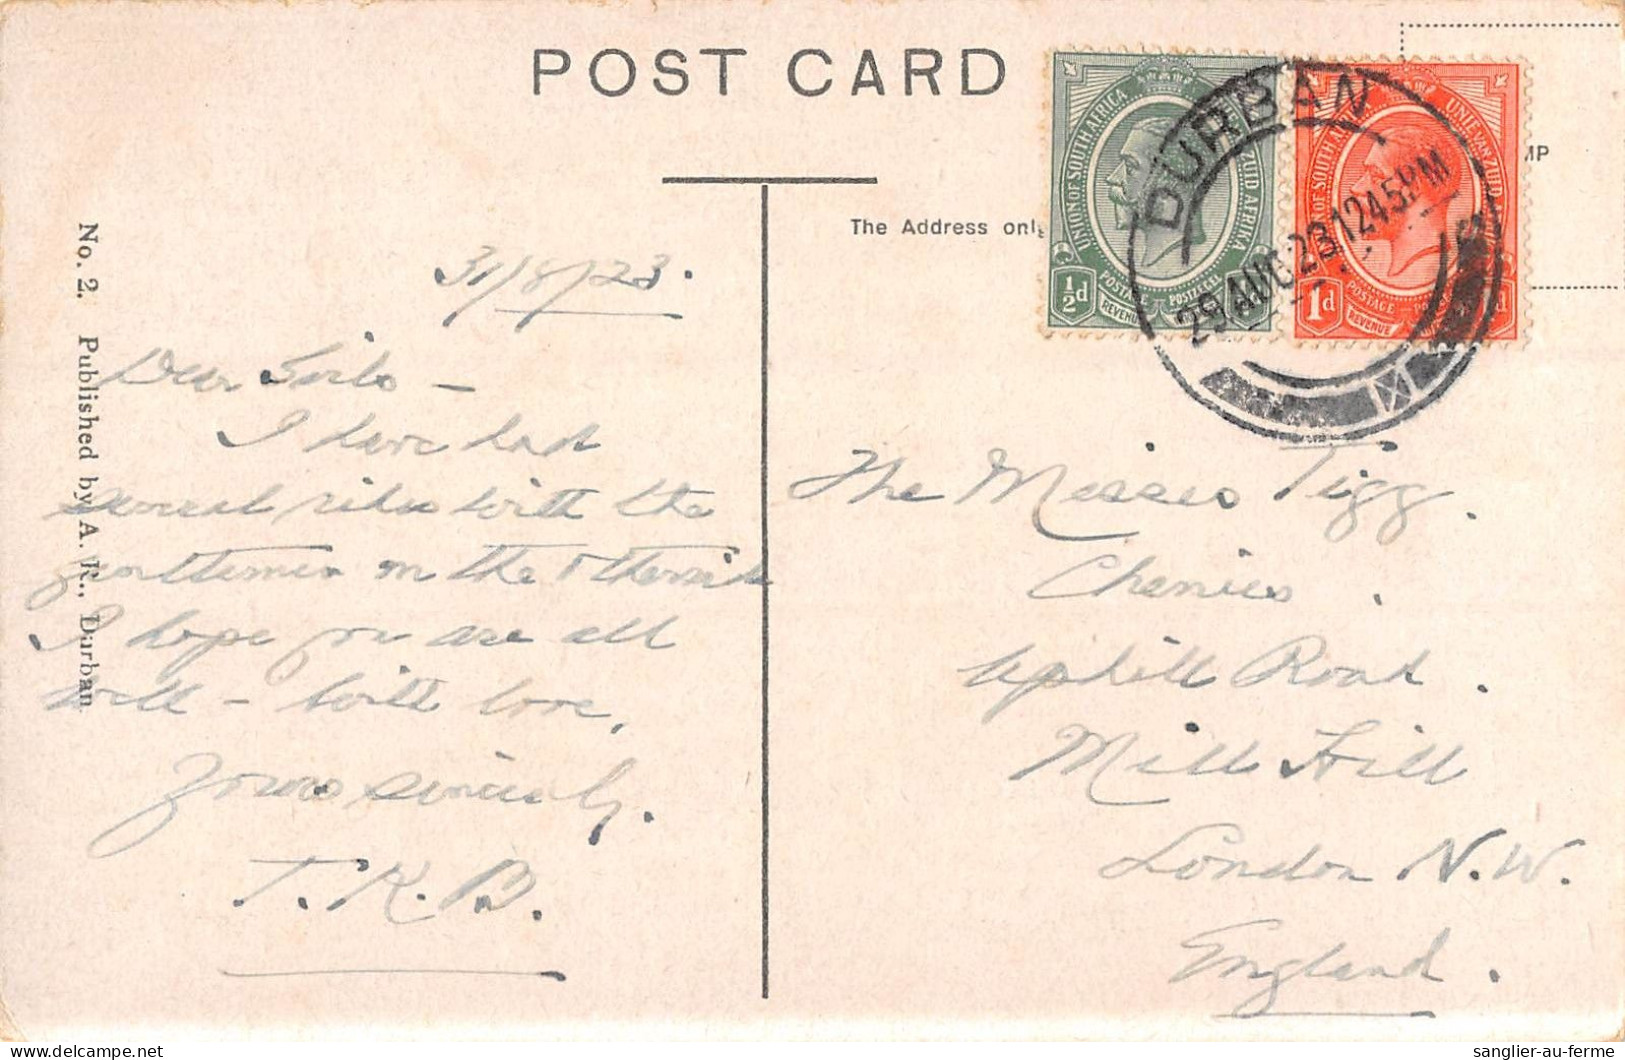 POST CARD
The Address only
MP
UNION OF SOUTH AFRICA
ZUID AFRIKA
POSTAGE POSTZEGEL
REVENUE
½d
OF SOUTH
UNIE VAN ZUID
POSTAGE
REVENUE
1d d
DURBAN
29 AUG 23 1245PM
No. 2. Published by A. R., Durban.
31/8/23.
Dear Girls –
I have had
several rides with the
gentlemen on the otherside
I hope you are all
well – with love,
Yours sincerely.
T.K.B.
The Misses Tigg.
Chenies.
Uphill Road.
Mill Hill
London N.W.
England.
sanglier-au-ferme